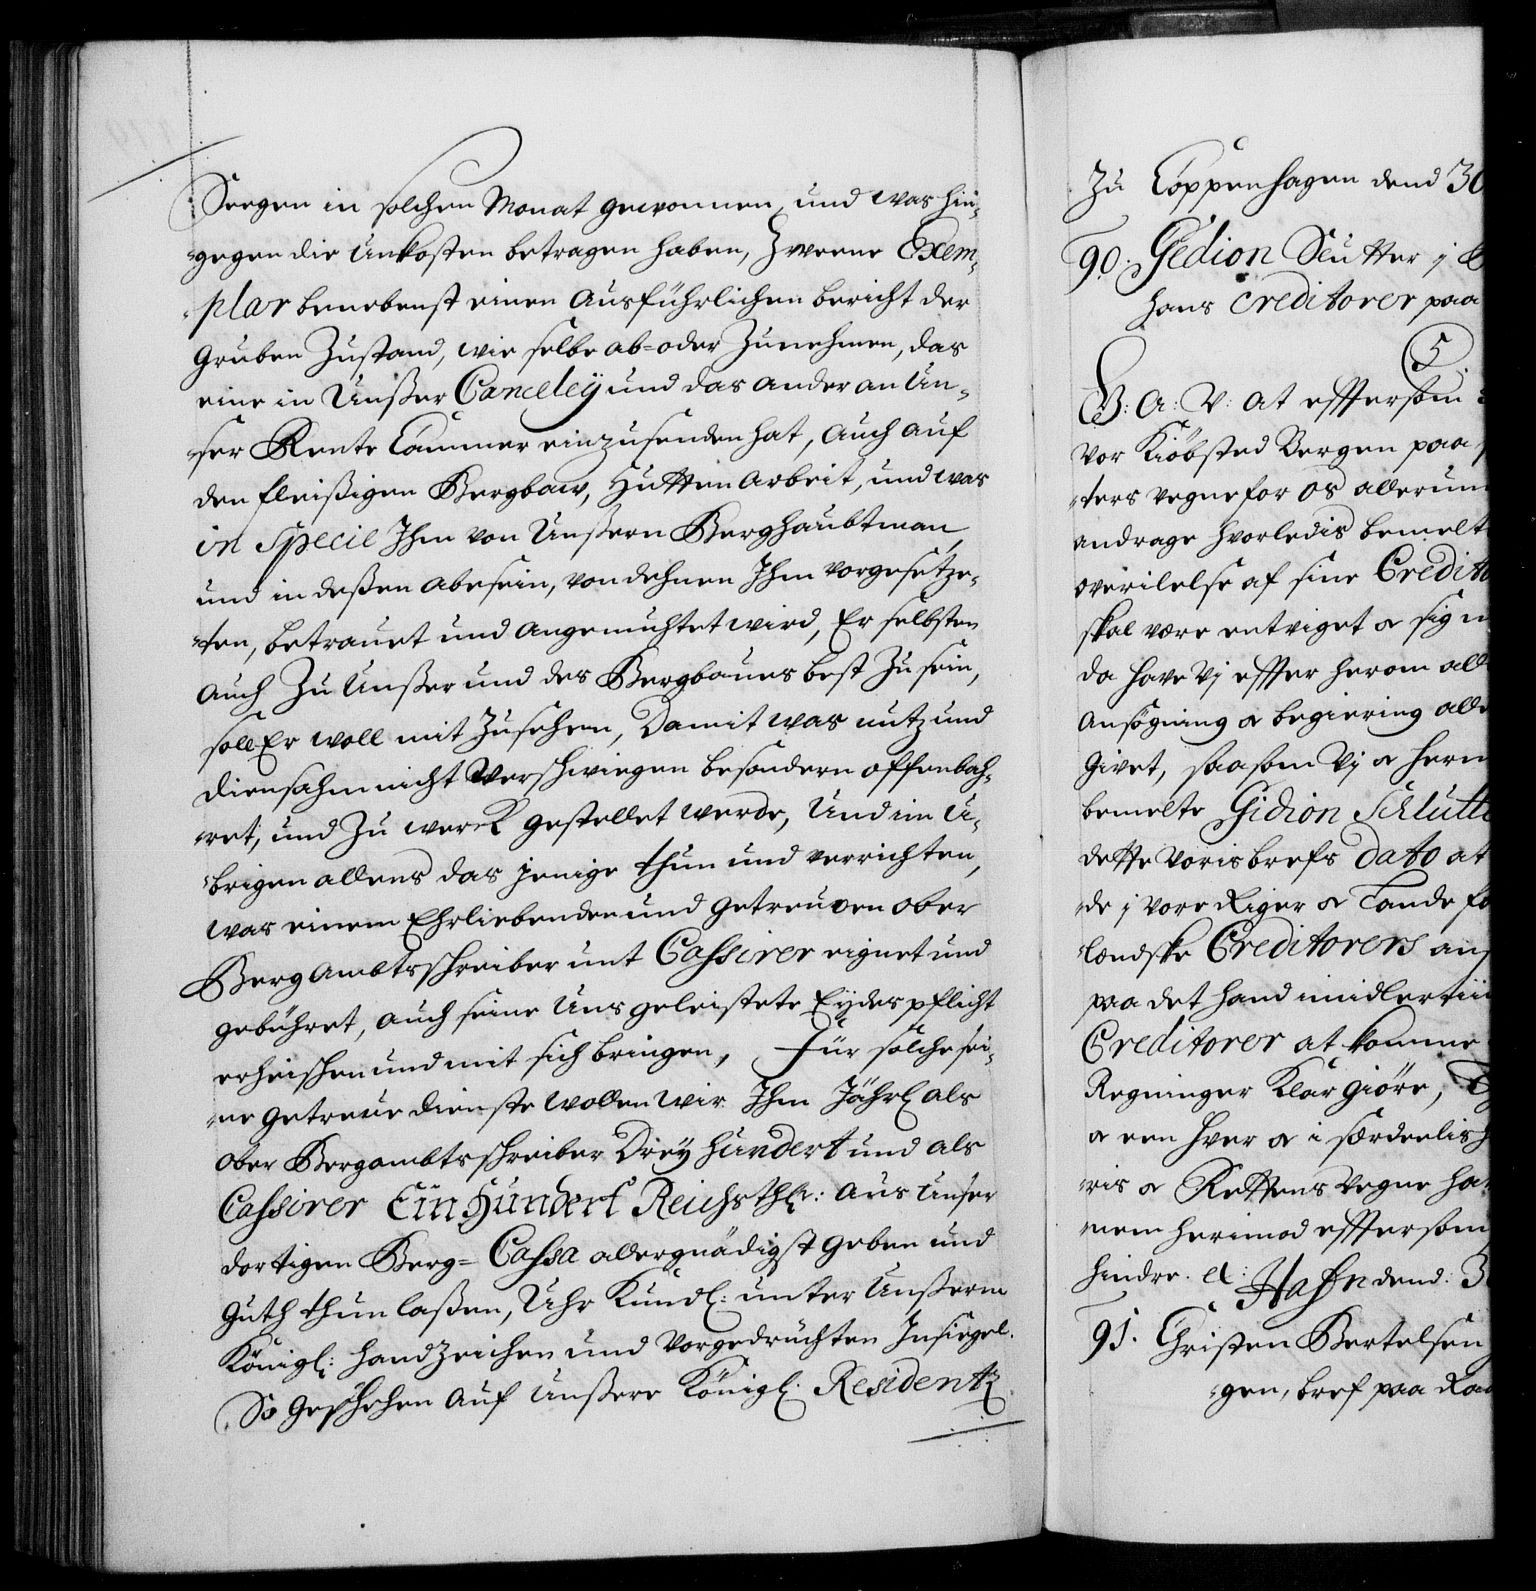 Seegen in solchen Monat gewonnen, und was hin-
gegen die Unkosten betragen haben, Zweene Exem-
plar benebenst einen Ausführlichen bericht der
Gruben Zustand, wie selbe ab- oder Zunehmen, das
eine in Unßer Canceley und das ander an Un-
ser Rente Cammer einzusenden hat, Auch auf
den fleißigen Bergbaw, Hütten Arbeit, und was
in Specie Ihm von Unßern Berghaubtman
und in deßen Abesein, von dehnen Ihm vorgesetze-
ten, betrauet und Angemuhtet wird, Er selbsten
Auch Zu Unßer und des Bergbaues best Zu sein,
soll Er woll mit Zusehen, Damit was nutz und
diensahm nicht Verschwiegen besondern offenbah-
ret, und Zu werck gestellet werde, Und im Ü-
brigen allens das jenige thun und verrichten,
was einem Ehrliebenden und getreuwen ober
Berg Ambtsschreiber unt Cassirer eignet und
gebühret, auch seine Uns geleistete Eydes pflicht
erheischen und mit sich bringen, Für solche sei-
ne getreue dienste wollen wir Ihm Jährl als
ober Bergambts schreiber Drey Hundert und als
Cassirer Ein Hundert Reichsthlr: Aus Unser
dortigen Berg= Cassa allergnädigst geben und
guth thun laßen, Uhr Kundl: unter Unßerm
Königl: Handzeichen und Vorgedruckten Insiegel.
So geschehen Auf Unßere Königl. Residentz
Zu Coppenhagen dend 30
90. Gedion Slutter j
hans Creditorer paa
5
G: A: V: At effter som
vor Kiöbsted Bergen paa
ters vegne for os allerun
andrage hvorledis bemelt
overilelse af sine Credito
skal være entviget & sig
da have Vj effter herom all
Ansögning & begiering alle
givet, saasom Vj & herm
bemelte Gidion Schlutte
dette Voris brefs Dato at
de j vore Riger & Lande
lændske Creditorers
paa det hand imidlertiid
Creditorer at komme
Regninger klar giöre,
& een hver & i særdeelish
ris & Rettens vegne ha
nem herimod effter som
hindre. et: Hafn dend: 3
91. Christen Bertelsen
gen, bref paa